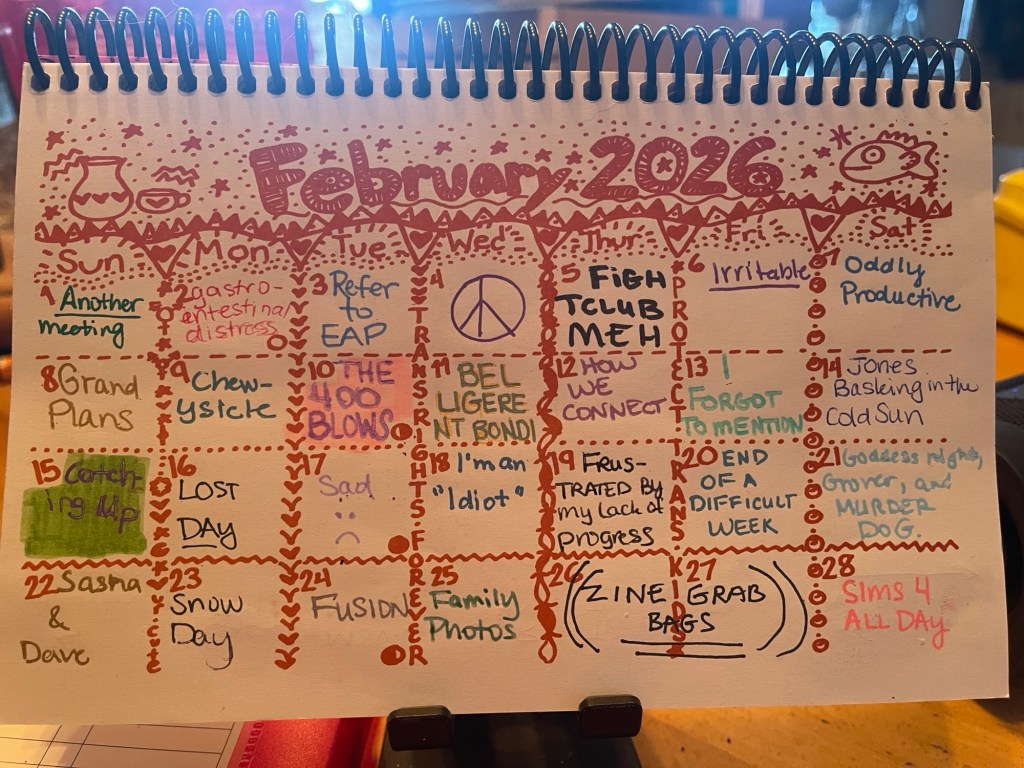 February 2026
Sun Mon Tue Wed Thur Fri Sat
1 Another
meeting
2 gastro-
entestinal
distress
3 Refer
to
EAP
4
5 FIGH
TCLUB
MEH
6 Irritable
7 Oddly
Productive
8 Grand
Plans
9 Chew-
ysicle
10 THE
400
BLOWS
11 BEL
LIGERE
NT BONDI
12 HOW
WE
CONNECT
13 I
FORGOT
TO MENTION
14 Jones
Basking in the
Cold Sun
15 Catch-
ing Up
16
LOST
DAY
17
Sad
18 I'm an
"Idiot"
19 FRUS-
TRATED BY
my lack of
progress
20 END
OF A
DIFFICULT
WEEK
21 Goddess night,
Grover, and
MURDER
DOG.
22 Sasha
&
Dave
23
Snow
Day
24
FUSION
25
Family
Photos
26 27
ZINE GRAB
BAGS
28
SIMS 4
ALL DAY
TRANS.RIGHTS.FOREVER
PROTECT TRANS KIDS